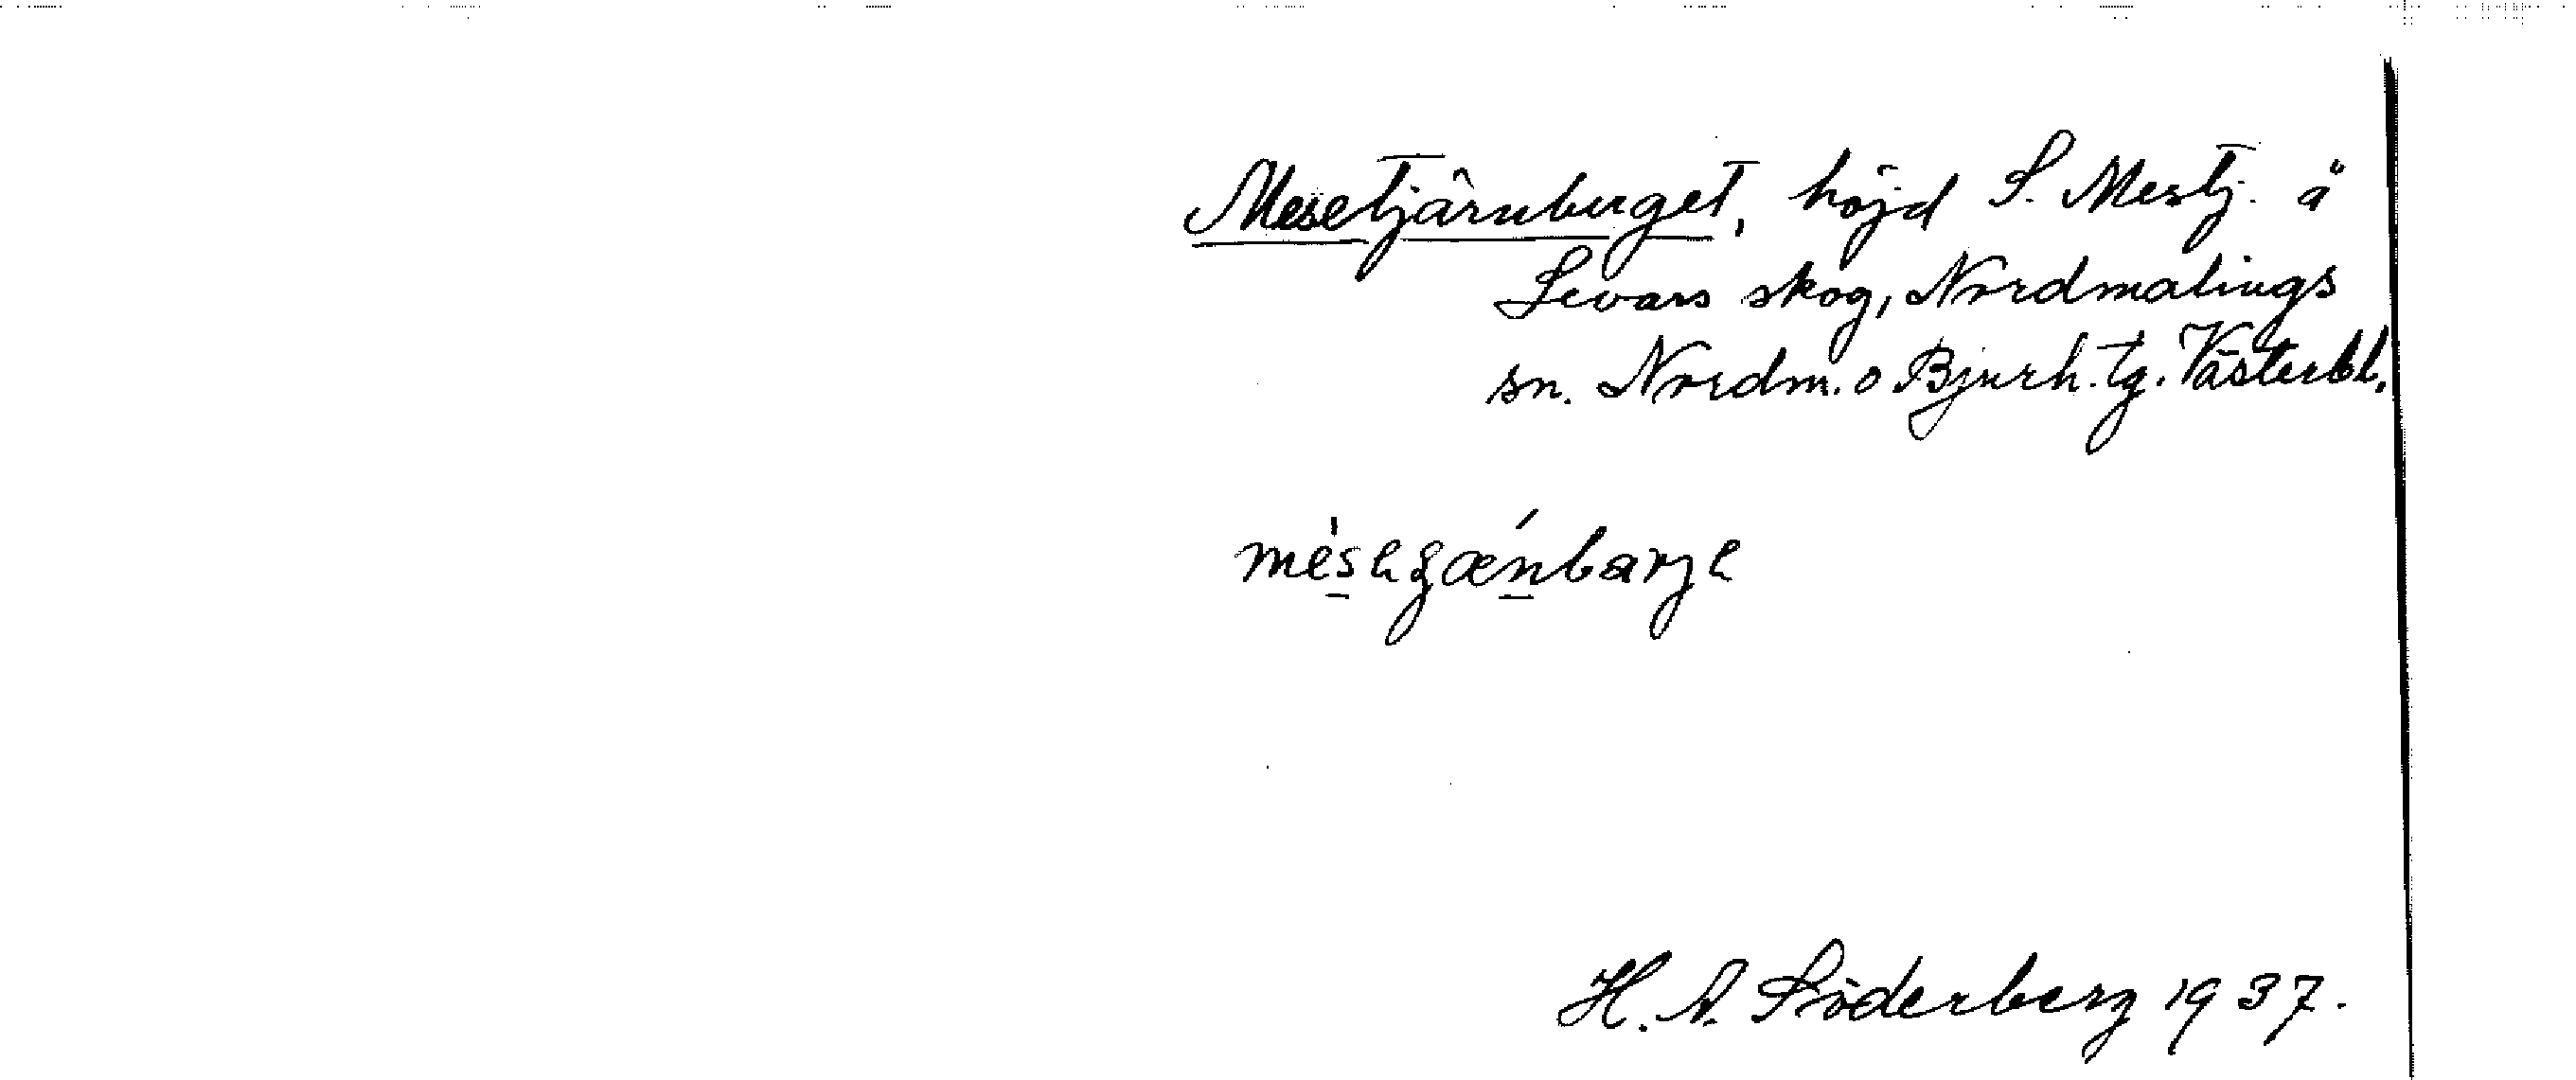 Mesetjärnberget, höjd S. Mestj. å
Levars skog, Nordmalings
sn. Nordm. o Bjurh. tg. Västerbl.
H. A. Söderberg 1937.